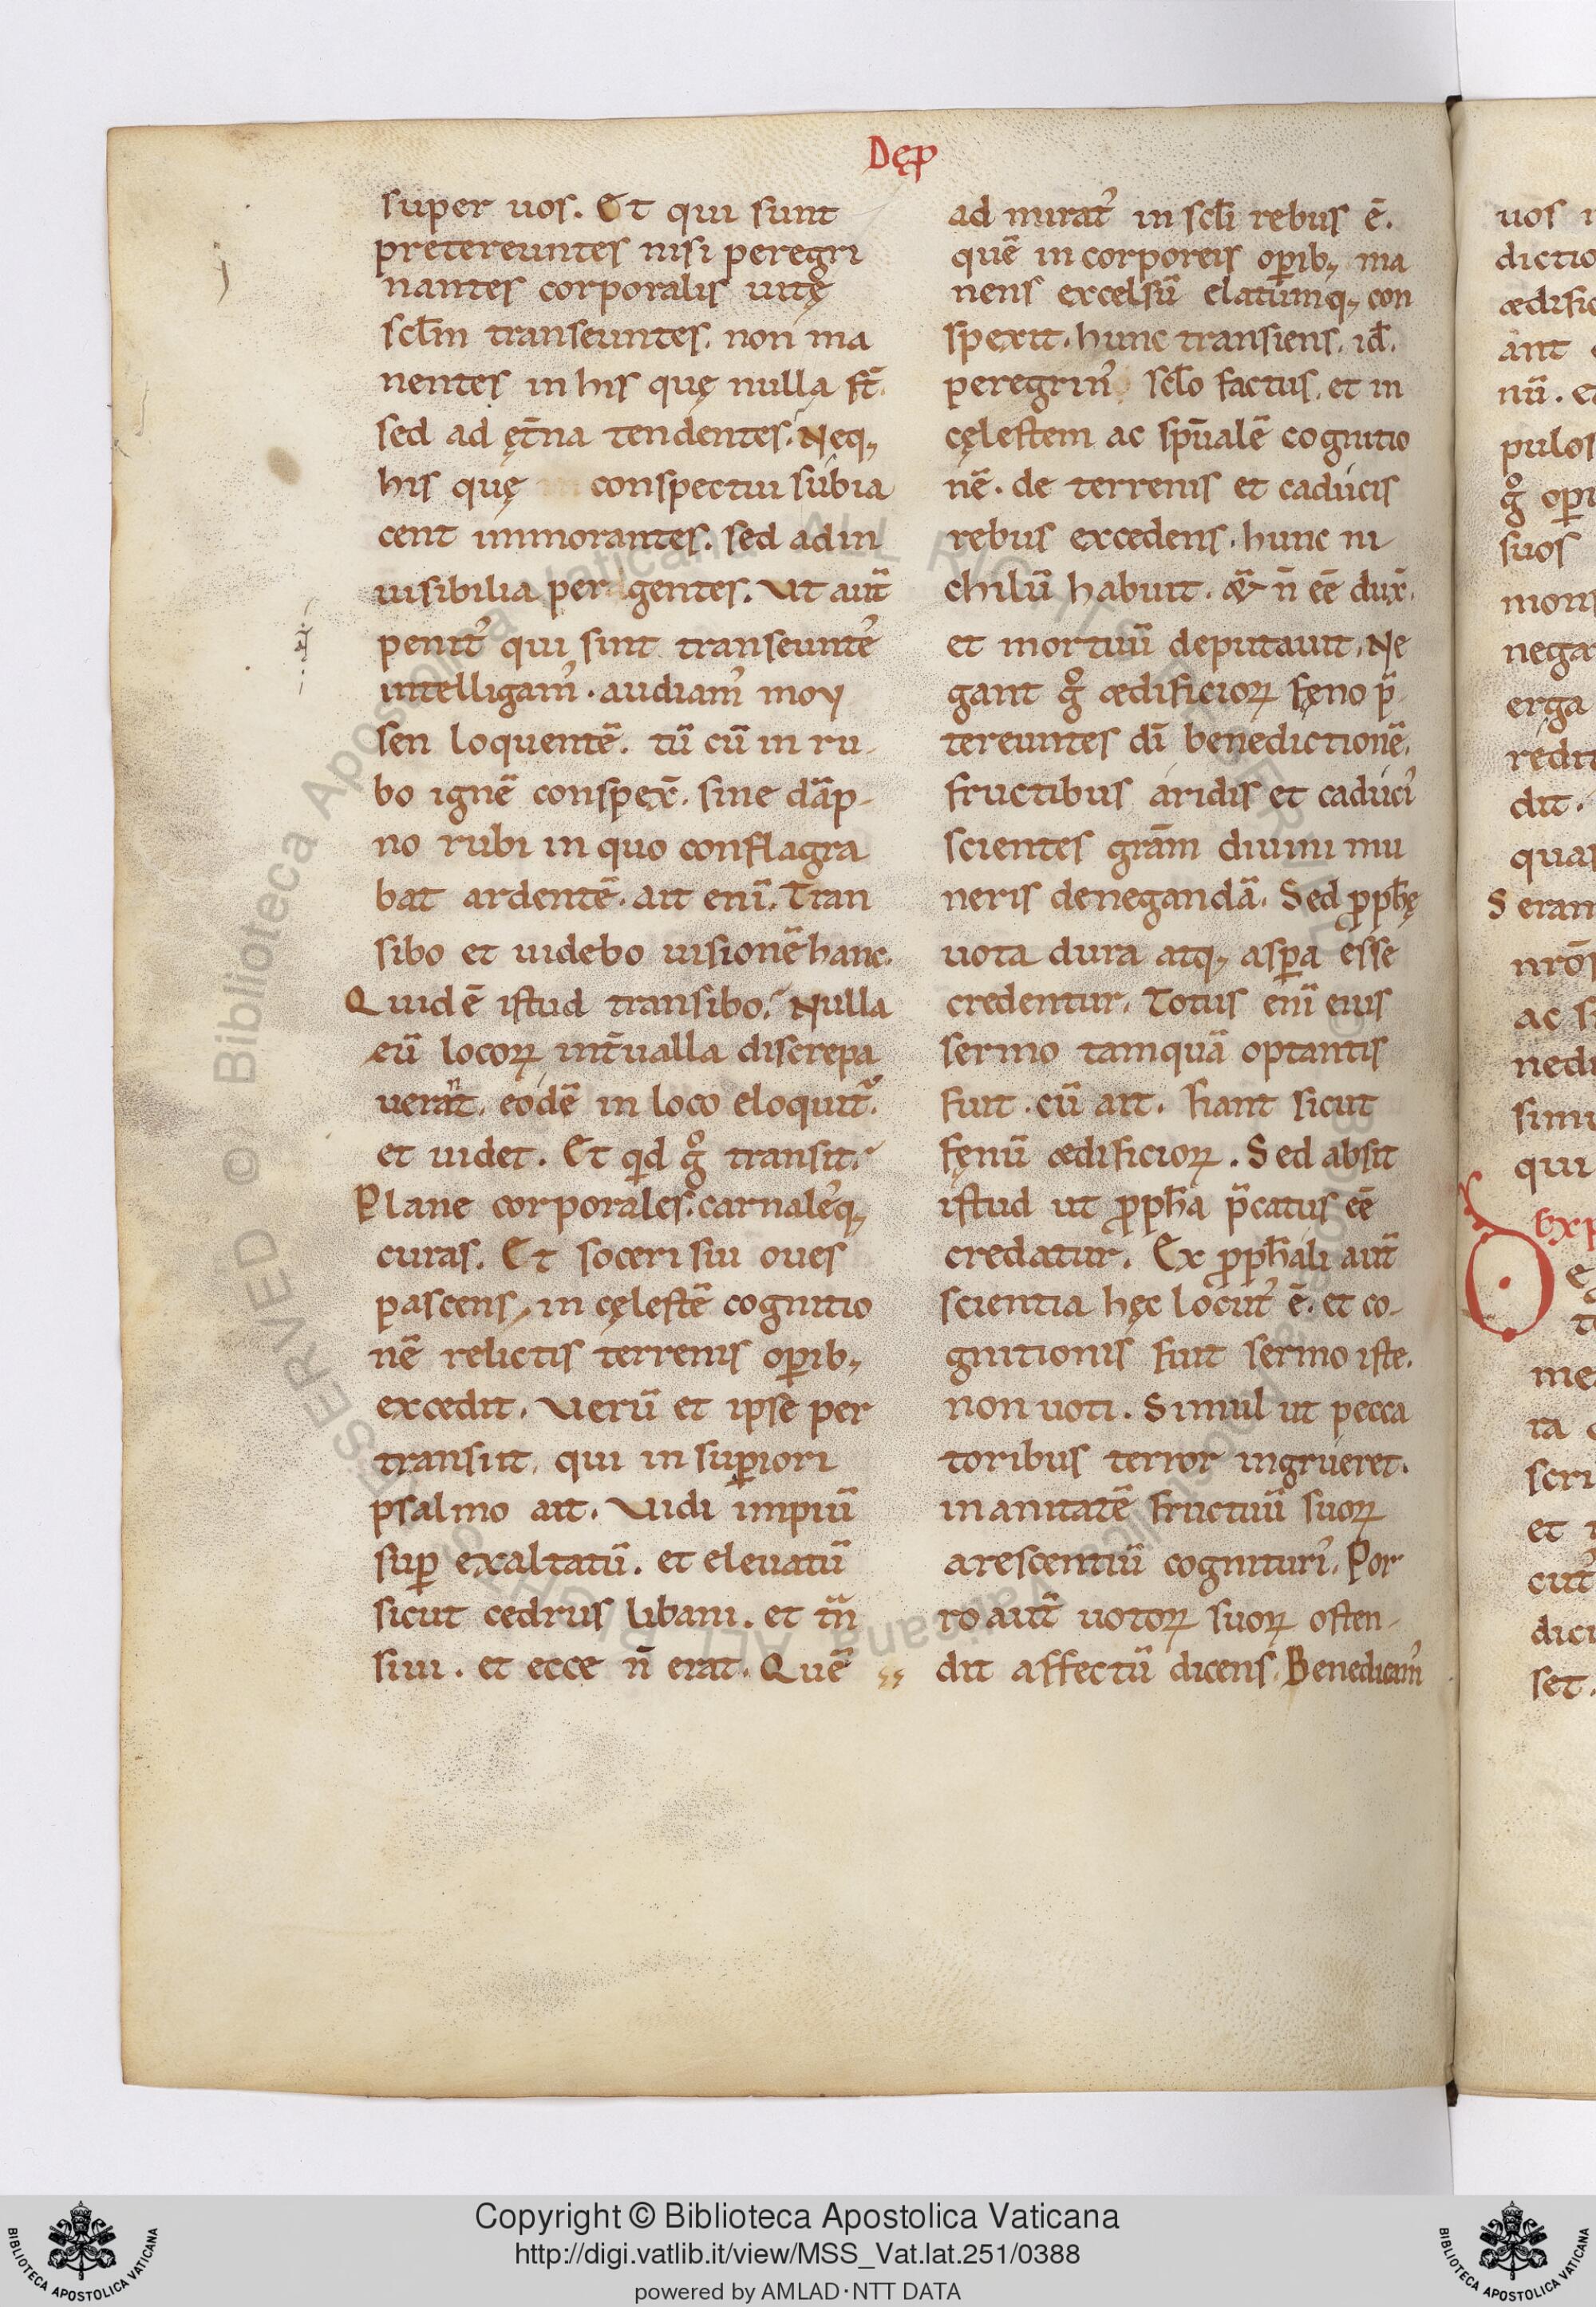 Dęp
super uos. Et qui sunt
pretereuntes nisi peregri
nantes corporalis uitę
scl̄m transeuntes. non ma
nentes in his quę nulla st̄.
sed ad ęt̄na tendentes. Neq;
his quę conspectui subia
cent immorantes. sed ad in
uisibilia pergentes. Ut aut̄
penit᾽ qui sint transeunte᾽
intelligam᾽. audiam᾽ moy
sen loquentē. tū cū in ru-
bo ignē conspex̄. sine dāp-
no rubi in quo conflagra
bat ardentē. ait enī. Tran
sibo et uidebo uisionē hanc.
Quid ē istud transibo? Nulla
eū locoꝝ int̄ualla discrepa
uerānt. eodē in loco eloquit᾽.
et uidet. Et qd g̊ transit?
Plane corporales. carnale᾽q;
curas. Et soceri siu oues
pascens, in cęlestē cognitio
nē relictis terrenis oꝑib;
excedit. Uerū et ipse per
transiit, qui in suꝑiori
psalmo ait. Uidi impiū
suꝑ exaltatū. et eleuatū
sicut cedrus libani. et t̄n
siui. et ecce n̄ erat. Quē
ad mirat᾽ in scl̄i rebus ē.
quē in corporeis oꝑib; ma
nens excelsū elatūmq; con
spexit. hunc transiens. id̄.
peregrin᾽ scl̄o factus. et in
cęlestem ac sp̄ualē cognitio
nē. de terrenis et caducis
rebus excedens. hunc ni
chilū habuit. & n̄ eē dux̄.
et mortuū deputauit. Ne
gant g̊ ædificioꝝ fęno p̄
tereuntes dī benedictionē.
fructibus aridis et caduci᾽
scientes grām diuini mu
neris denegandā. Sed ꝓph̄ę
uota dura atq; asꝑa esse
credentur. Totus enī eius
sermo tamquā optantis
fuit. cū ait. fiant sicut
fęnū ædificioꝝ. Sed absit
istud ut ꝓph̄a p̄catus eē
credatur. Ex ꝓph̄ali aut̄
scientia hęc locut᾽ ē. et co-
gnitionis fuit sermo iste.
non uoti. Simul ut pecca
toribus terror ingrueret.
inanitatē fructuū suoꝝ
arescentiū cognituri᾽. Por
ro aut̄ uotoꝝ suoꝝ osten-
dit affectū dicens. Benedicam᾽
uos
dictio
ædific
ant
nū. et
pulos
g̊ oꝑi
suos
mons
nega
erga
redit
dit.
quas
Seran
nrōs
ac si
nedi
simu
qui
exp
me
ra
scri
et
cut᾽
dici
set.
© Biblioteca Apostolica Vaticana ALL RIGHTS RESERVED
Copyright © Biblioteca Apostolica Vaticana
http://digi.vatlib.it/view/MSS_Vat.lat.251/0388
powered by AMLAD·NTT DATA
BIBLIOTECA APOSTOLICA VATICANA
BIBLIOTECA APOSTOLICA VATICANA